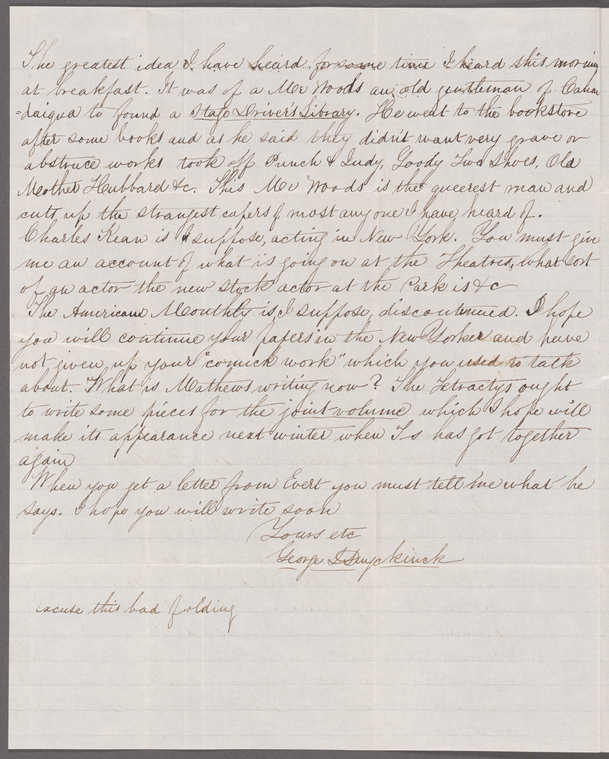 The greatest idea I have heard for some time I heard this morning
at breakfast. It was of a Mr Woods an old gentleman of Canan
=daigua to found a Stage Driver's Library. He went to the bookstore
after some books and as he said they didn't want very grave or
abstruce works took off Punch & Judy, Goody Two Shoes, Old
Mother Hubbard &c. This Mr Woods is the queerest man and
cuts up the strangest capers of most any one I have heard of.
Charles Kean is I suppose, acting in New York. You must give
me an account of what is going on at the Theatres, what sort
of an actor the new stock actor at the Park is &c
The American Monthly is, I suppose, discontinued. I hope
you will continue your papers in the New Yorker and have
not given up your "comick work" which you used to talk
about. What is Mathews writing now? The Tetractys ought
to write some pieces for the joint volume which I hope will
make its appearance next winter when T.s has got together
again
When you get a letter from Evert you must tell me what he
says. I hope you will write soon
Yours etc
George L Duyckinck
excuse this bad folding